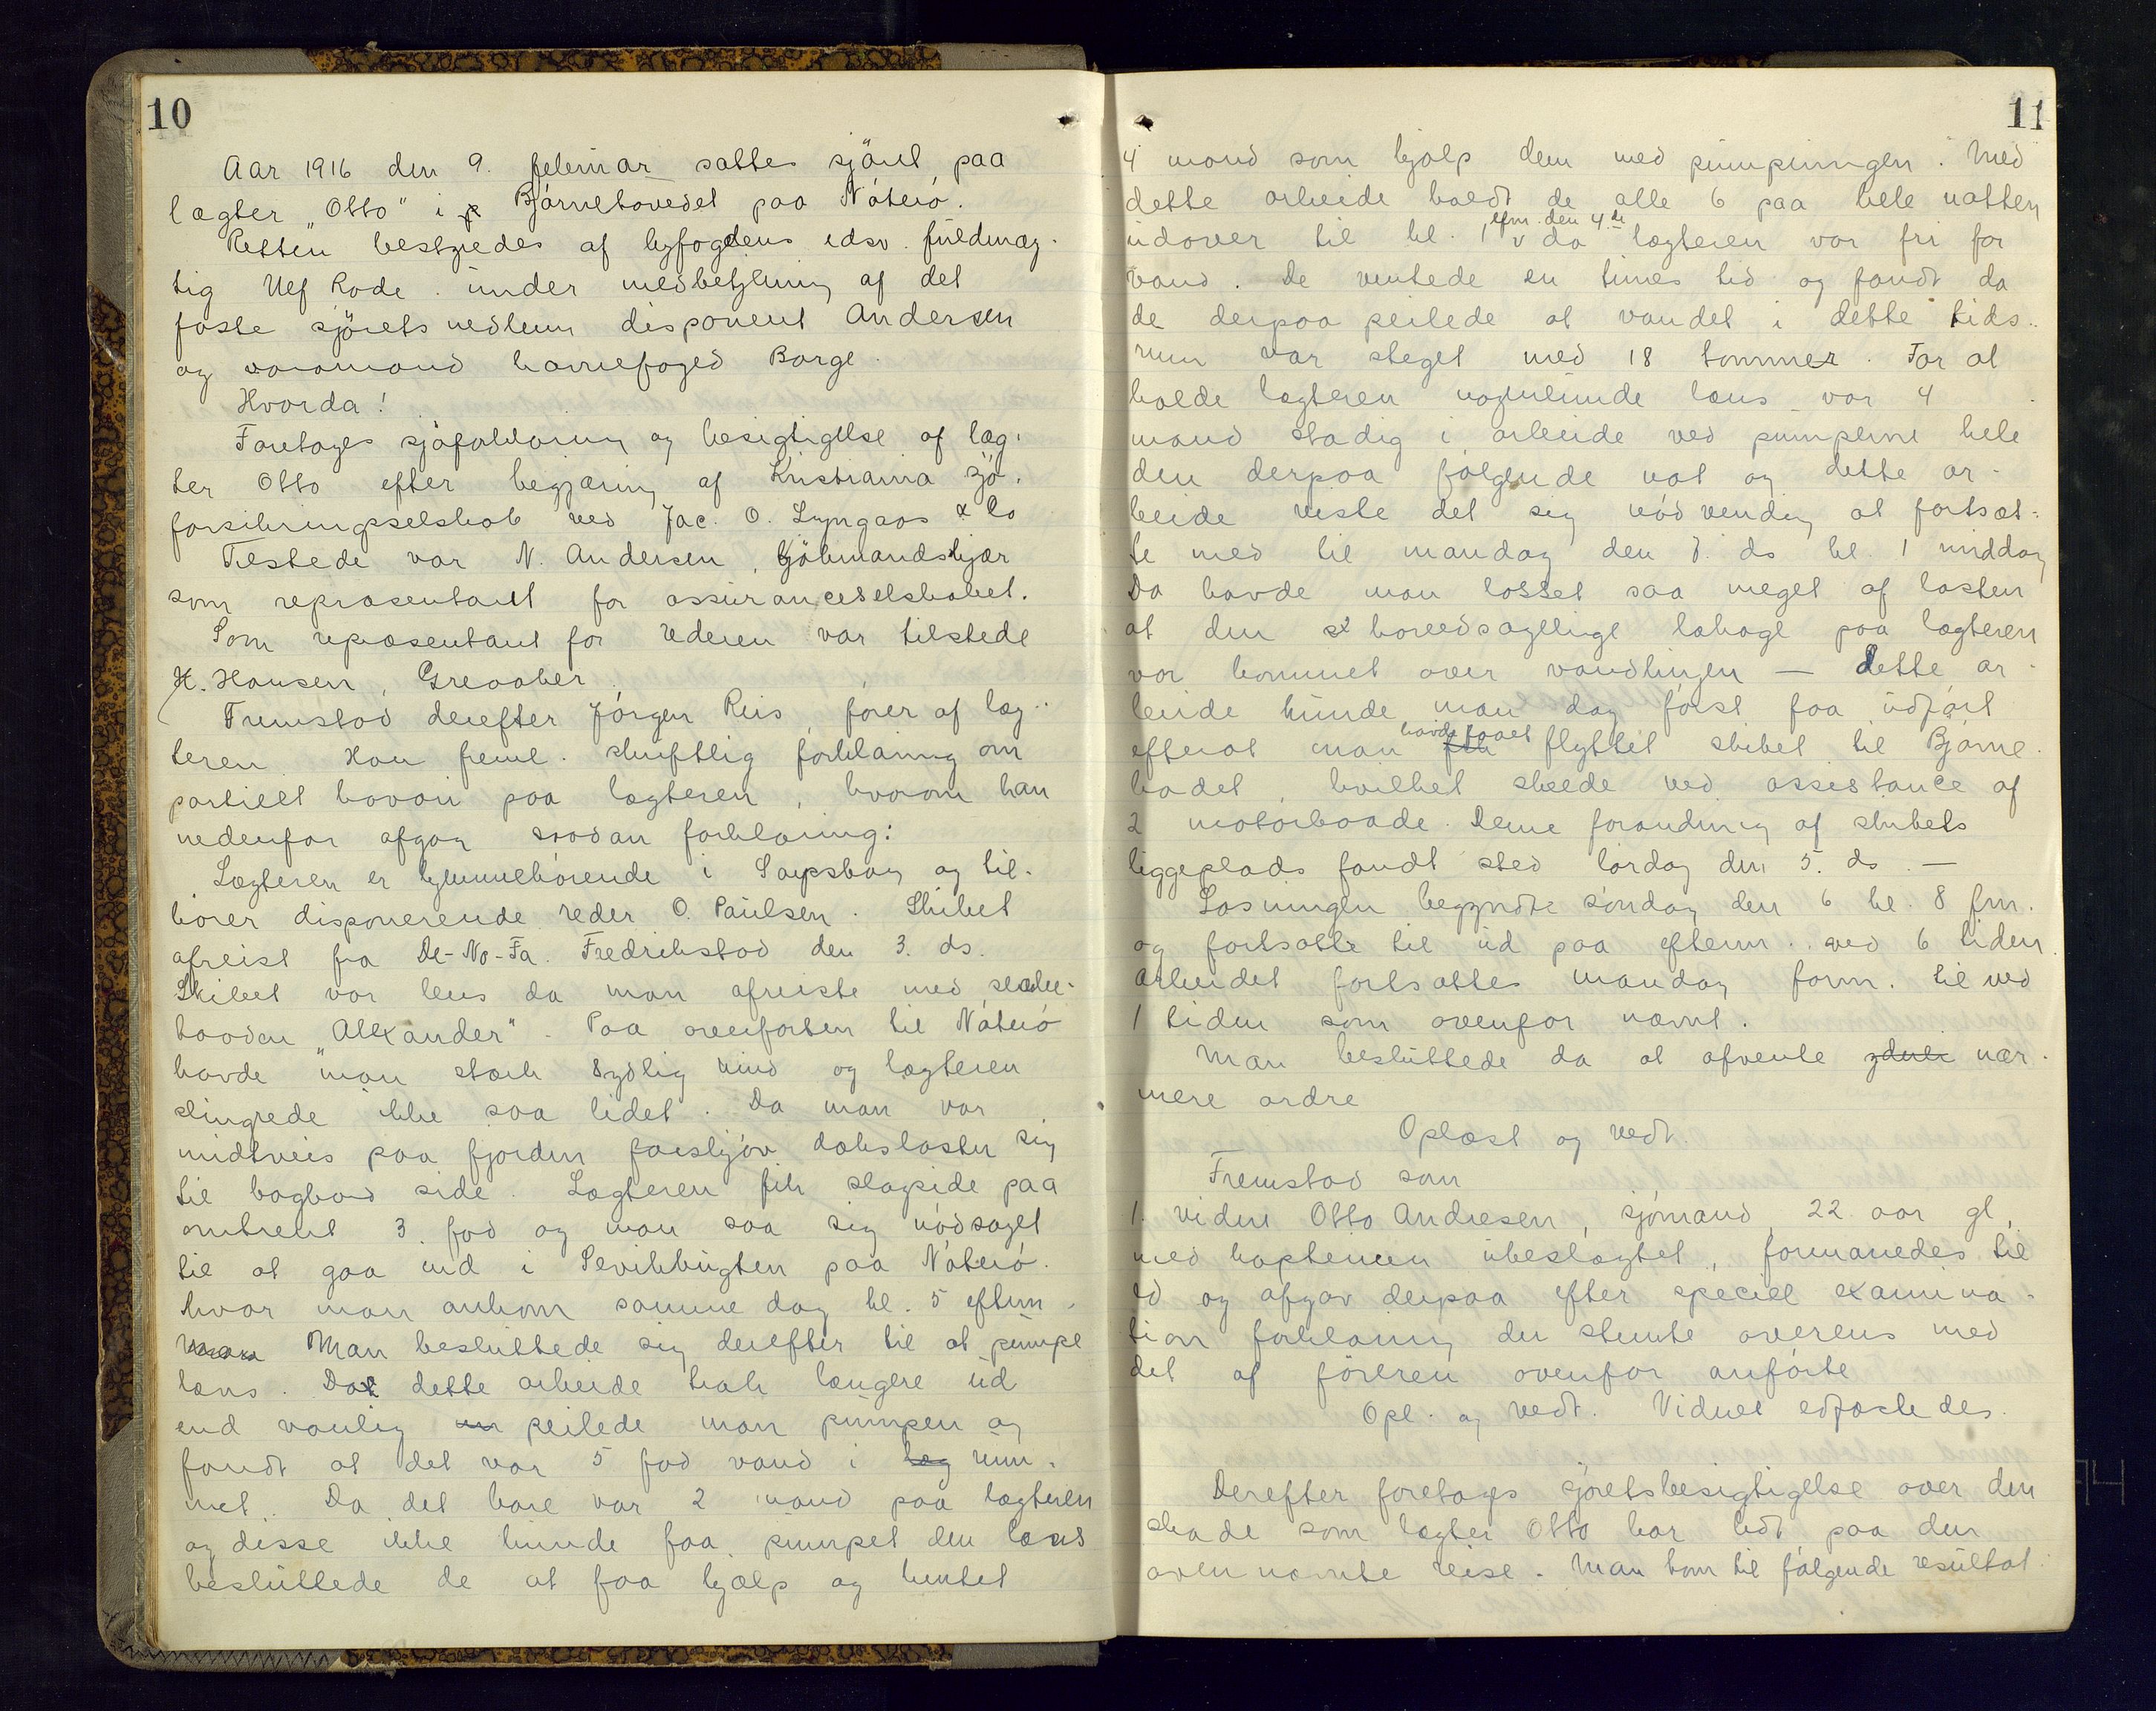 10
Aar 1916 den 9. februar sattes sjöret paa
lægter „Otto" i Bjørnehovedet paa Nøterö.
Retten bestyredes af byfogdens edsv. fuldmæg-
tig Ulf Rode under medbetjening af det
faste sjöretsmedlem disponent Andersen
og varamand havnefoged Borge.
Hvorda!
Foretages sjöforklaring og besigtigelse af læg-
ter Otto efter begjæring af Kristiania sjö-
forsikringsselskab ved Jac. O. Lyngaas & Co
Tilstede var N. Andersen, Kjöbmandskjær
som repræsentant for assuranceselskabet.
Som repræsentant for rederen var tilstede
H. Hansen, Greaaker.
Fremstod derefter Jörgen Riis, förer af læg-
teren. Han freml. skriftlig forklaring om
partielt havari paa lægteren, hvorom han
nedenfor afgav saadan forklaring:
Lægteren er hjemmehörende i Sarpsborg og til-
hörer disponerende reder O. Paulsen. Skibet
afreist fra De-No-Fa. Fredrikstad den 3. ds.
Skibet var lens da man afreiste med slæbe-
baaden „Alexander". Paa overfarten til Nøterö
havde man stærk sydlig vind og lægteren
slingrede ikke saa lidet. Da man var
midtveis paa fjorden forskjöv dækslasten sig
til bagbord side. Lægteren fik slagside paa
omtrent 3 fod og man saa sig nödsaget
til at gaa ind i Sevikbugten paa Nøterö.
hvor man ankom samme dag kl. 5 efterm.
Man besluttede sig derefter til at pumpe
læns. Da dette arbeide trak længere ud
end vanlig peilede man pumpen og
fandt at det var 5 fod vand i rum-
met. Da det bare var 2 mand paa lægteren
og disse ikke kunde faa pumpet den læns
besluttede de at faa hjælp og hentet
11
4 mand som hjalp dem med pumpningen. Med
dette arbeide holdt de alle 6 paa hele natten
udover til kl. 1 efm. den 4de da lægteren var fri for
vand. De ventede en times tid og fandt da
de derpaa peilede at vandet i dette tids-
rum var steget med 18 tommer. For at
holde lægteren nogenlunde læns var 4
mand stadig i arbeide ved pumperne hele
den derpaa følgende nat og dette ar-
beide viste det sig nödvendig at fortsæt-
te med til mandag den 7. ds kl. 1 middag
Da havde man losset saa meget af lasten
at den hovedsagelige lækage paa lægteren
var kommet over vandlinjen — dette ar-
beide kunde man dog först faa udfört
efterat man havde faaet flyttet skibet til Bjørne-
hodet, hvilket skeede ved assistance af
2 motorbaade. Denne forandring af skibets
liggeplads fandt sted lördag den 5. ds. —
Losningen begyndte söndag den 6 kl. 8 fm.
og fortsatte til ud paa efterm. ved 6 tiden
arbeidet fortsattes mandag form. til ved
1 tiden som ovenfor nævnt.
Man besluttede da at afvente nær-
mere ordre
Oplæst og vedt.
Fremstod som
1. vidne Otto Andresen, sjömand, 22 aar gl,
med kapteinen ubeslægtet, formanedes til
ed og afgav derpaa efter speciel examina-
tion forklaring der stemte overens med
det af föreren ovenfor anförte
Opl. og vedt. Vidnet edfæstedes.
Derefter foretages sjöretsbesigtigelse over den
skade som lægter Otto har lidt paa den
ovennævnte reise. Man kom til fölgende resultat